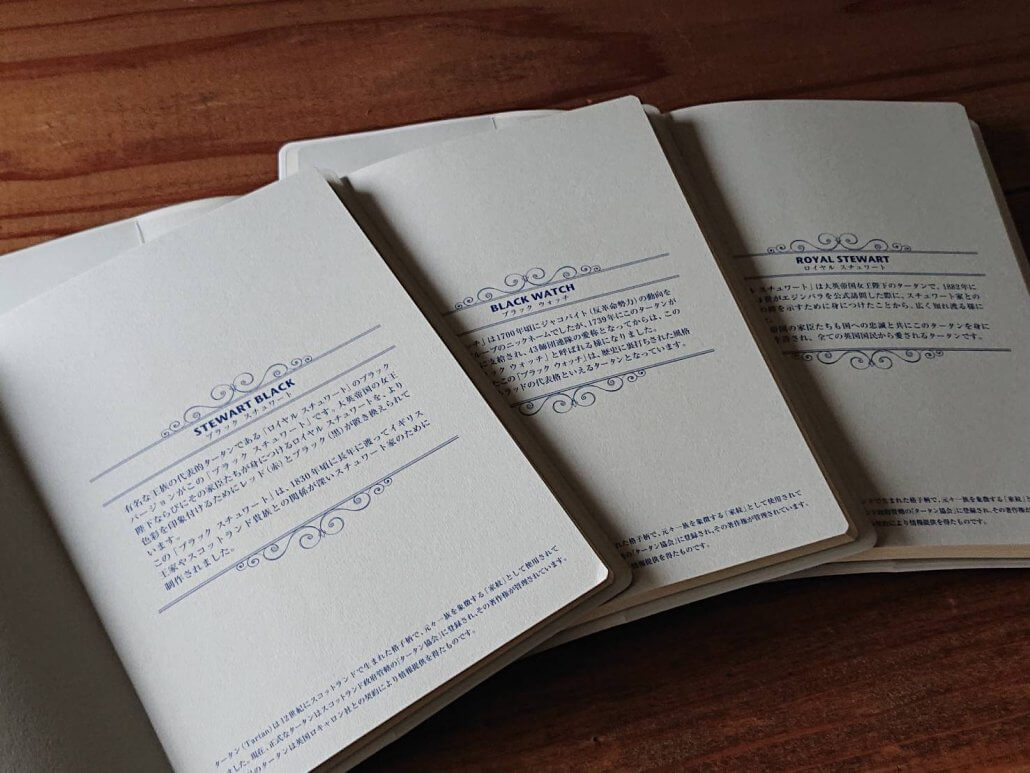 STEWART BLACK
ブラック スチュワート
有名な王族の代表的タータンである「ロイヤル スチュワート」のブラック
バージョンがこの「ブラック スチュワート」です。大英帝国の女王
陛下ならびにその家臣たちが身につけるロイヤル スチュワートを、より
色彩を印象付けるためにレッド(赤)とブラック(黒)が置き換えられて
います。
この「ブラック スチュワート」は、1830年頃に長年に渡ってイギリス
王家やスコットランド貴族との関係が深いスチュワート家のために
制作されました。
タータン(Tartan)は12世紀にスコットランドで生まれた格子柄で、元々一族を象徴する「家紋」として使用されて
ました。現在、正式なタータンはスコットランド政府管轄の「タータン協会」に登録され、その著作権が管理されています。
のタータンは英国ロキャロン社との契約により情報提供を得たものです。
BLACK WATCH
ブラック ウォッチ
ッチ」は1700年頃にジャコバイト(反革命勢力)の動向を
ループのニックネームでしたが、1739年にこのタータンが
に支給され、43師団連隊の愛称となってからは、この
ック ウォッチ」と呼ばれる様になりました。
たこの「ブラック ウォッチ」は、歴史に裏打ちされた風格
ラッドの代表格といえるタータンとなっています。
まれた格子柄で、元々一族を象徴する「家紋」として使用されて
の「タータン協会」に登録され、その著作権が管理されています。
り情報提供を得たものです。
ROYAL STEWART
ロイヤル スチュワート
スチュワート」は大英帝国女王陛下のタータンで、1882年に
世がエジンバラを公式訪問した際に、スチュワート家との
を示すために身につけたことから、広く知れ渡る様に
帝国の家臣たちも国への忠誠と共にこのタータンを身に
され、全ての英国国民から愛されるタータンです。
で生まれた格子柄で、元々一族を象徴する「家紋」として使用されて
「タータン協会」に登録され、その著作権が管理されています。
契約により情報提供を得たものです。